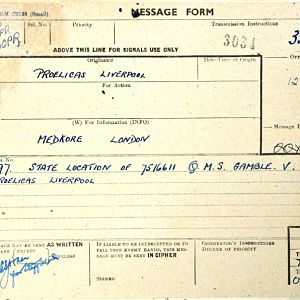 MESSAGE FORM
(Small)
Srl. No.
Priority
Transmission Instructions
3034
3
ABOVE THIS LINE FOR SIGNALS USE ONLY
Originator
Date/Time of Origin
PROELICAS LIVERPOOL
For Action
12
(W) For Information (INFO)
MEDKORE LONDON
s No.
97. STATE LOCATION OF 7516611 Q.M.S. GAMBLE. V.
ROELICAS LIVERPOOL
MAY BE SENT AS WRITTEN
IF LIABLE TO BE INTERCEPTED OR TO
FALL INTO ENEMY HANDS, THIS MESSAGE MUST BE SENT IN CIPHER
Originator's Instructions
Degree of Priority
EXCEPT
WIRELESS
SIGNED